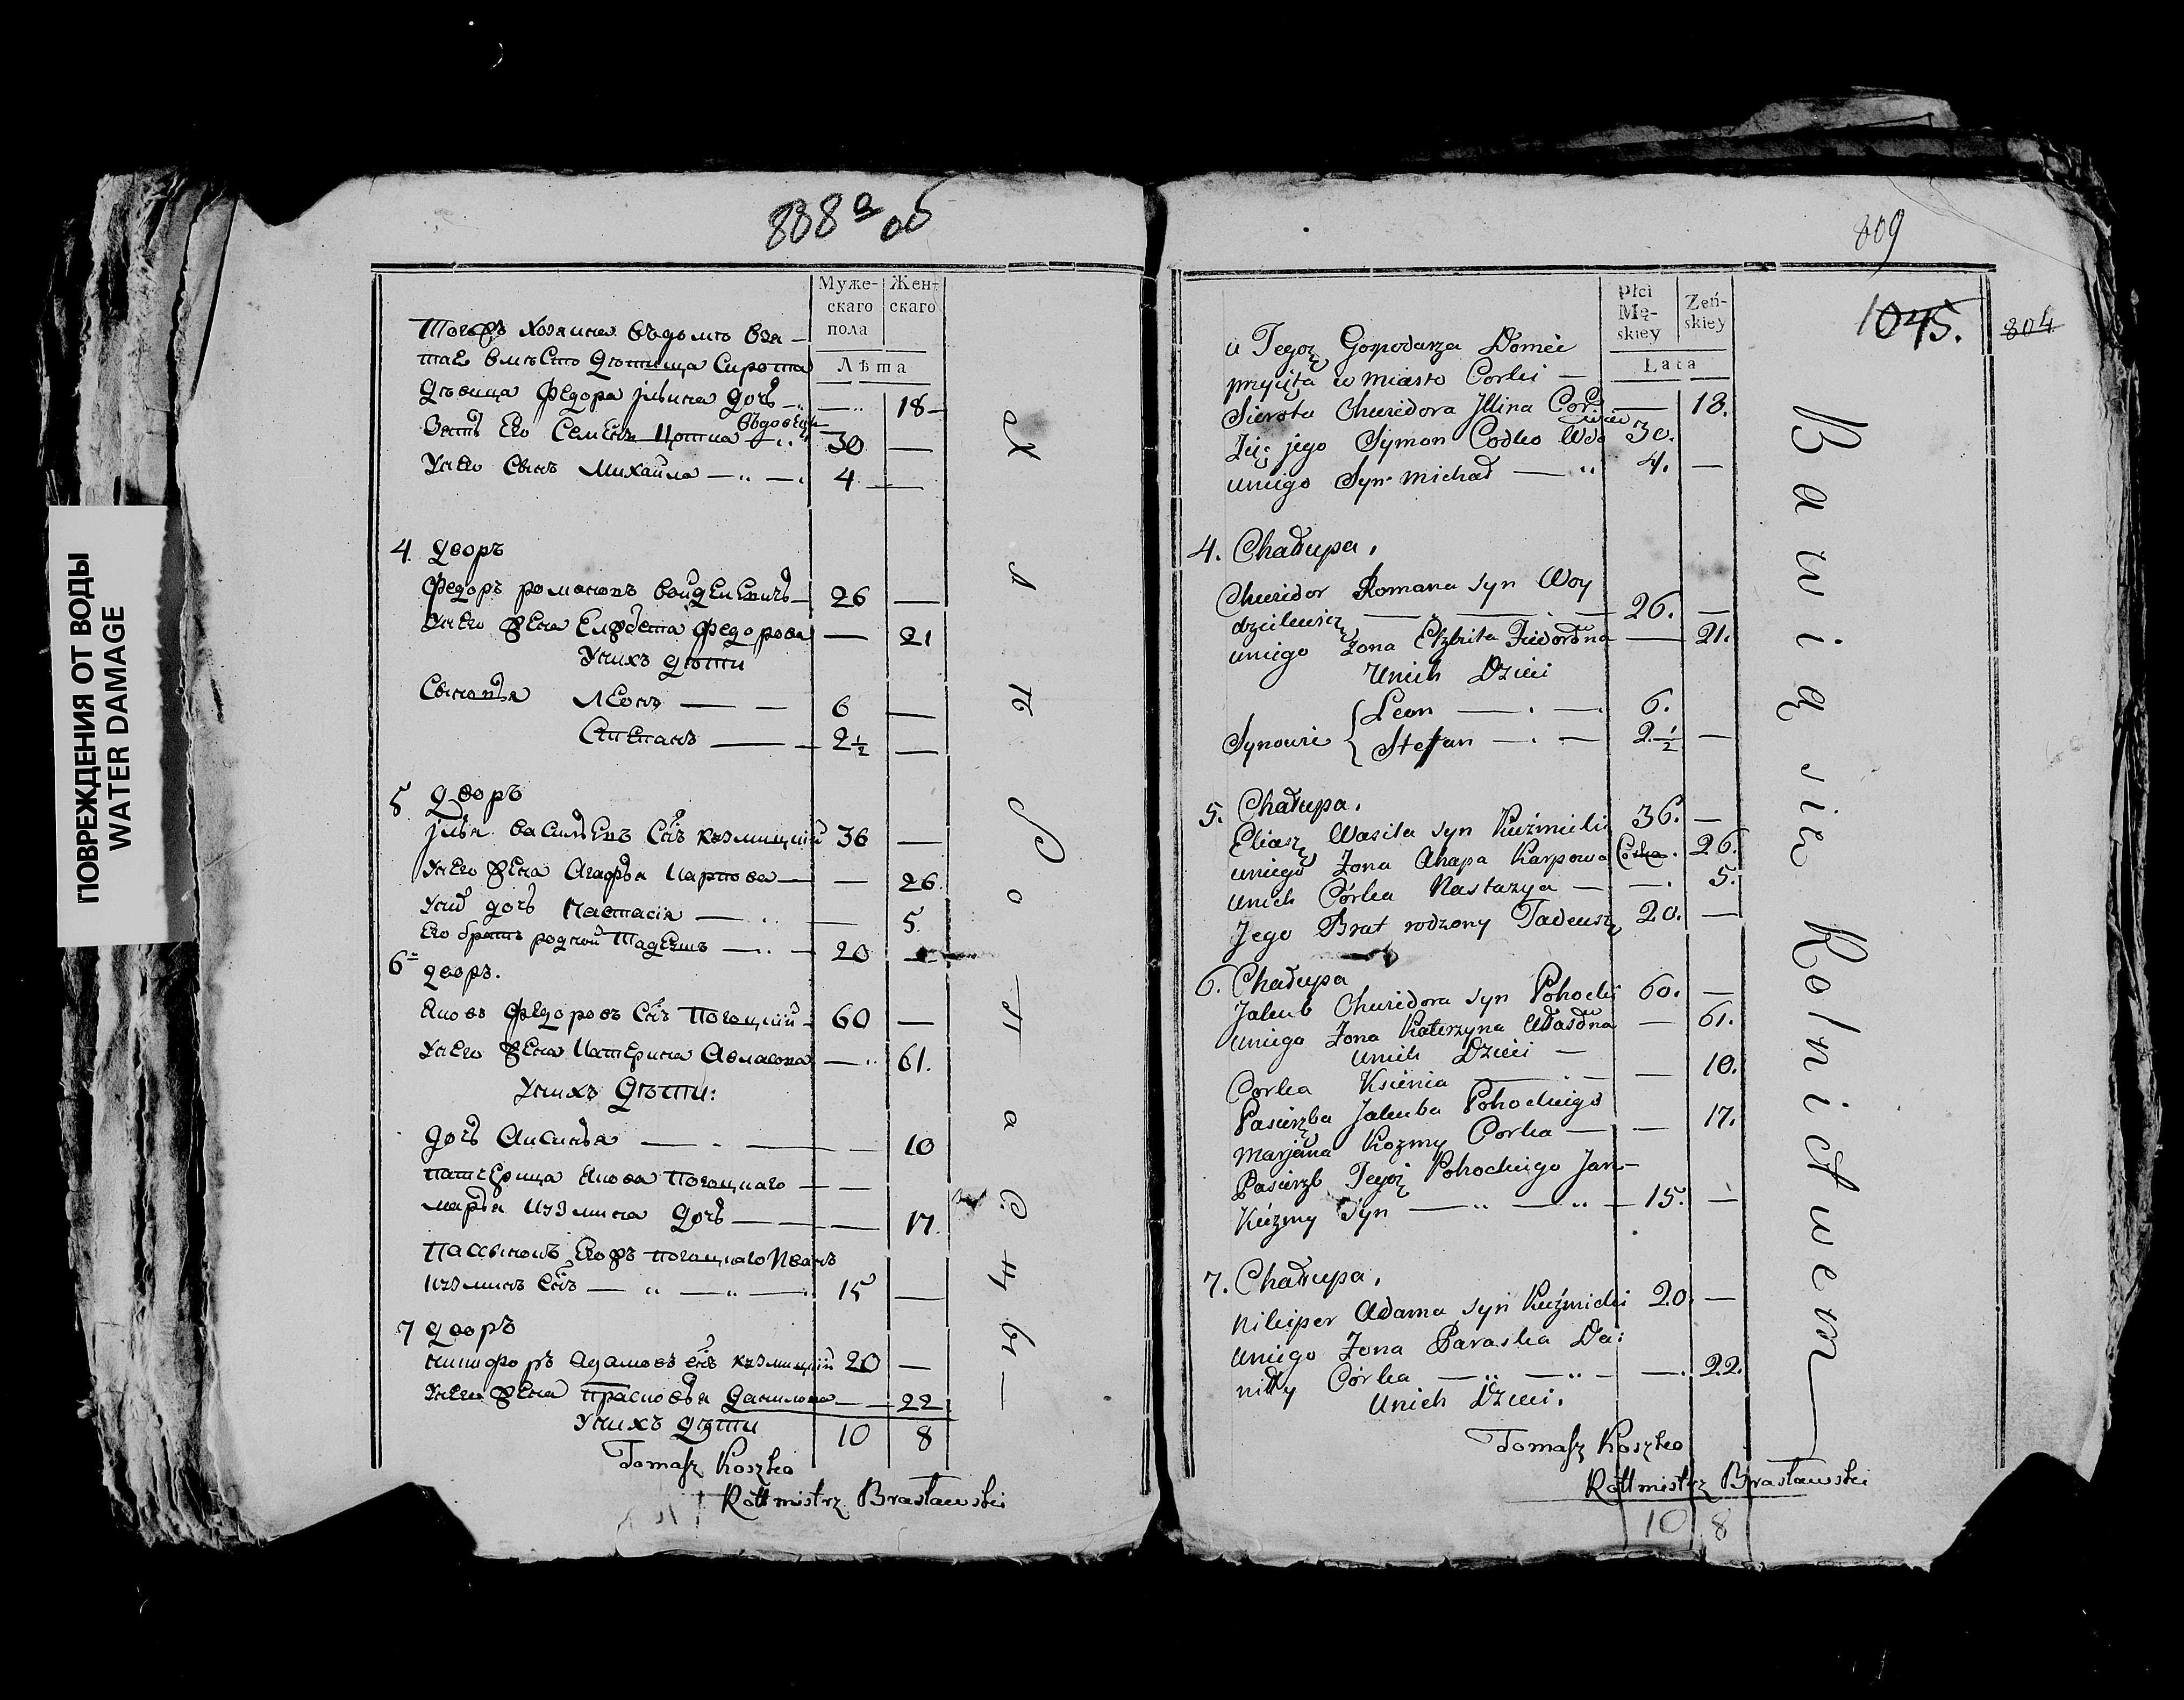 ПОВРЕЖДЕНИЯ ОТ ВОДЫ
WATER DAMAGE
838а об
Муже-
скаго
пола
Жен-
скаго
Лѣта
Тогожъ хозяина въ домѣ взя-
тая вмѣсто дѣтища Сирота
дѣвица Федора Ильина дочь 18
вдовецъ
Зять Его Семенъ 30 —
У него Сынъ Михайла 4 —
4 дворъ
Федоръ романовъ войделевичь 26 —
У него Жена Елжбета Федорова — 21
У нихъ дѣти
Сыновья Леонъ — — 6 —
Степанъ — 2½ —
5 дворъ
Илья васильевъ Снъ кузмицкій 36 —
У него Жена Агафья Карпова — — 26.
У них дочь Настасія — 5.
Его братъ родной Тадеушъ — 20 —
6 дворъ.
Яковъ Федоровъ Снъ Погоцкій 60 —
У него Жена Катерина Авласова — 61.
У нихъ Дѣти:
дочь Аксинья — — 10
падчерица Якова Погоцкаго — —
марья кузмина дочь — — 17.
Пасынокъ Егожъ погоцкаго Иванъ
кузминъ Снъ — 15 —
7 дворъ
никифоръ адамовъ снъ кузмицкій 20 —
У него Жена прасковья данилова — 22
У нихъ дѣти 10 8
Tomasz Koszko
Rottmistrz Brasławski
809
1045.
804
Płci
Mę-
skiey
Żeń-
skiey
Lata
u Tegoż Gospodarza Domie
przyięta w miasto Corki —
Sierota Chwiedora Illina Cor: — 18.
Zięć jego Symon 30.
uniego Syn Michał — 4. —
4. Chałupa,
Chwiedor Romana syn Woy
dzilewicz — 26. —
uniego Żona Elzbieta Fiedorówna — 21.
Unich Dzieci
Synowie { Leon — . — 6.
Steffan — . — 2½ —
5. Chałupa,
Eliasz Wasila syn Kuźmicki 36. —
uniego Żona Ahapa Karpowa Córka. 26.
unich Córka Nastazya — —. 5.
Jego Brat rodzony Tadeusz 20. —
6. Chałupa
Jakub Chwiedora syn Pohocki 60. —
uniego Żona Katerzyna Własówna — 61.
unich Dzieci —
Corka Ksienia — — 10.
Pasierzba Jakuba Pohockiego
Marjana Kozmy Corka — — 17.
Pasierzb Tegoż Pohockiego Jan —
Kuzmy Syn — 15. —
7. Chałupa,
Nikiper Adama syn Kuźmicki 20 —
uniego Żona Paraska Da:
niły Córka — —. 22.
Unich Dzieci.
Tomasz Koszko
Rottmistrz Brasławski
10 8
Bawią się Rolnictwem